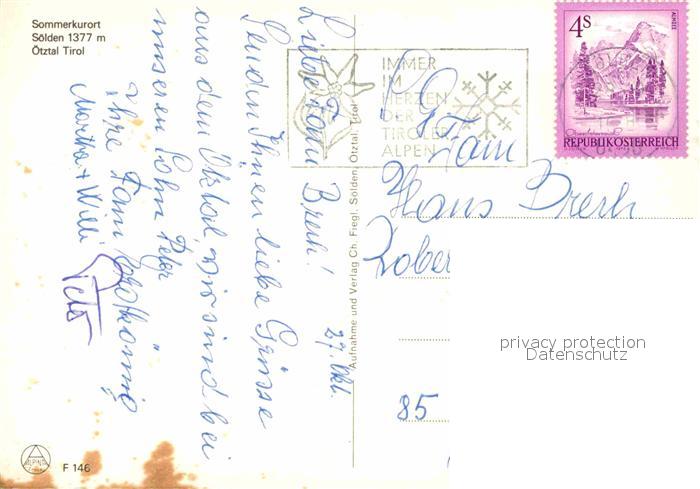 Sommerkurort
Sölden 1377 m
Ötztal Tirol
27. Okt.
Liebe Fam Bresh!
Senden Ihnen liebe Grüsse
aus dem Ötztal, wir sind bei
unseren Sohn Peter
Ihre Fam
Martha + Willi
Peter
Aufnahme und Verlag Ch. Fiegl, Sölden, Ötztal, Tirol
F 146
ALPINA
IMMER
IM
HERZEN
DER
TIROLER
ALPEN
4S
ALMSEE
Oberösterreich
REPUBLIK ÖSTERREICH
Fam
Hans Bresh
Rober
85
privacy protection
Datenschutz